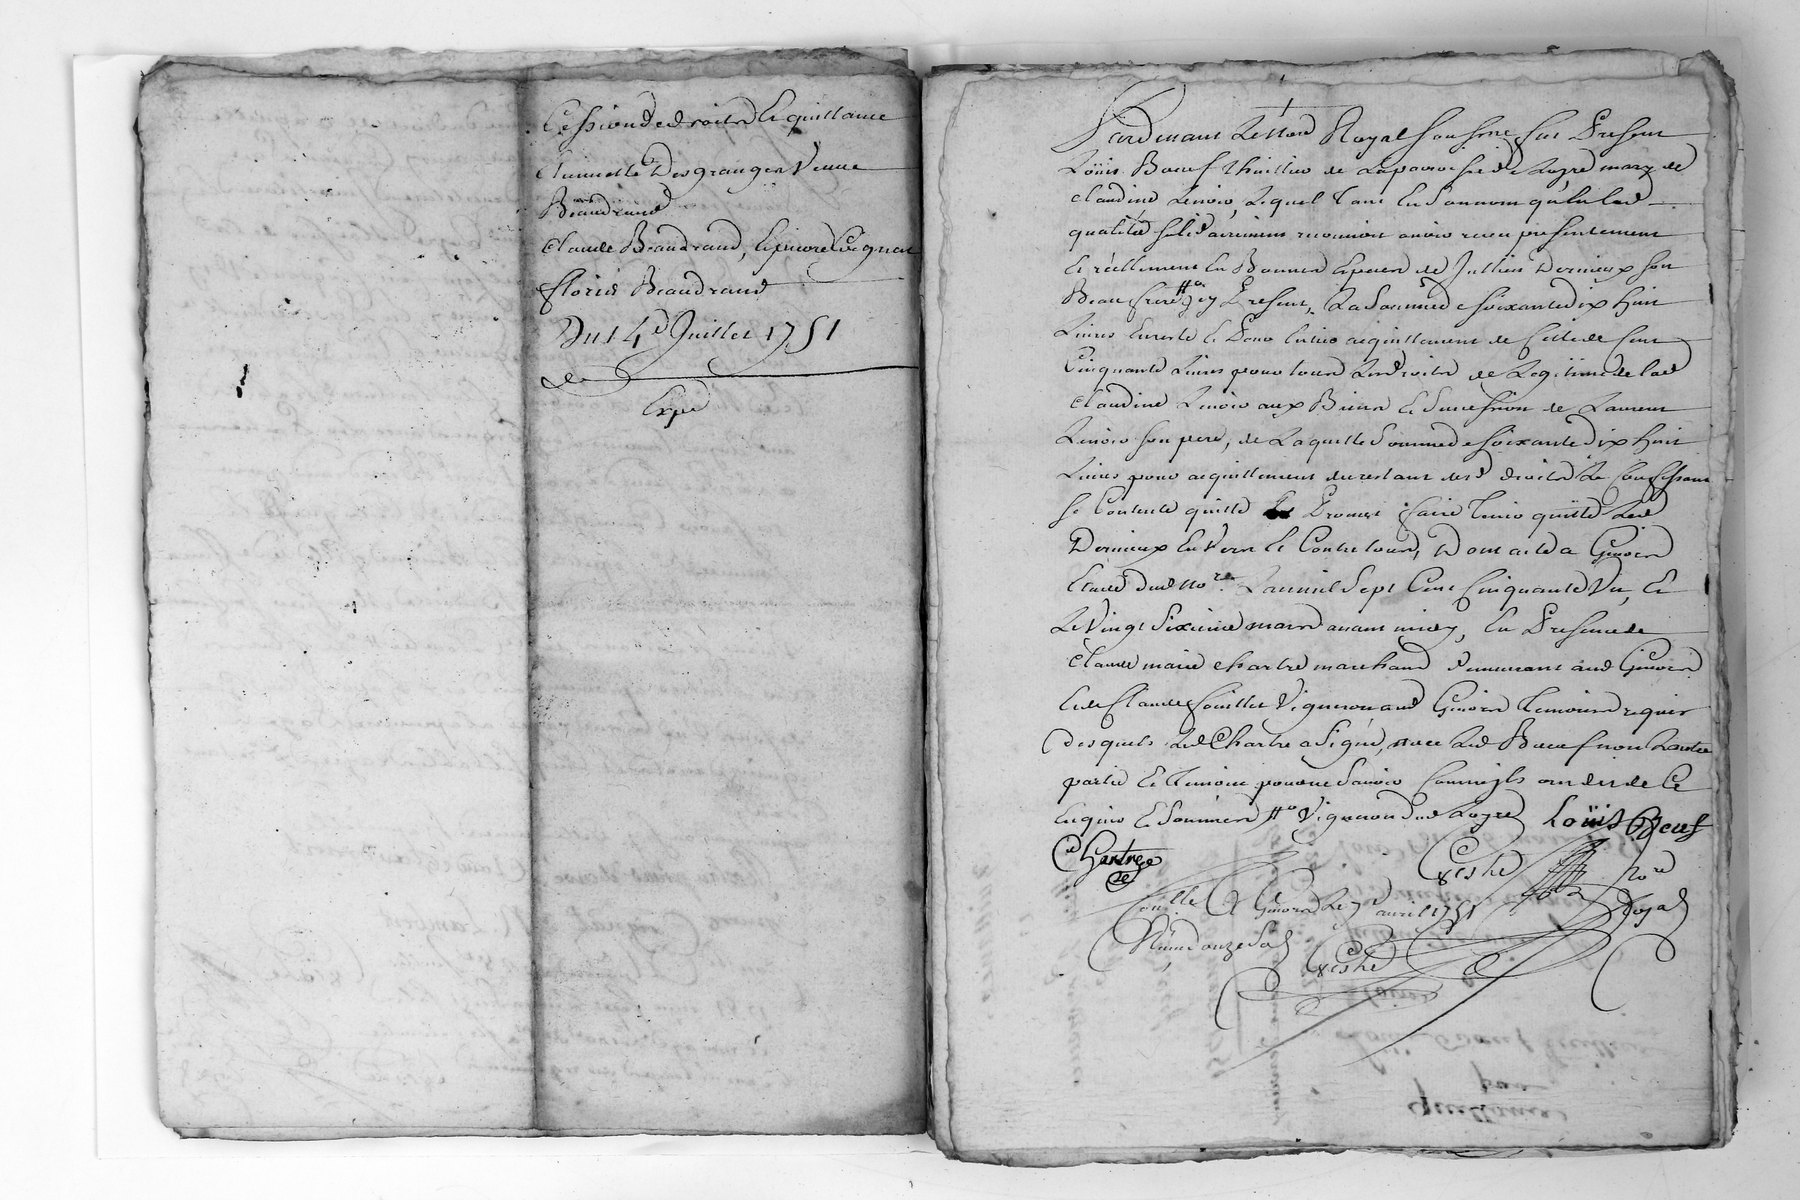 Cession de droits Et quittance
Annette Desgranges Veuve
Beaudrand
Claude Beaudrand, Epicere Cognat
Floris Beaudrand
Du 14e Juillet 1751
Expé
Pardevant Le Nore Royal soussigné fut Present
Loüis Bœuf thuillier de La paroisse de Loyre mary de
Claudine Lenoir, Lequel tant En son nom qu'En lad
qualité solidairement reconnoit avoir receu presentement
Et réellement En Bonnes Especes de Jullien Dernieux son
Beau frere # icy Present, La Somme de soixante dix huit
Livres En reste Et Pour Entier acquittement de Celle de Cent
Cinquante Livres pour tous Les droits de Legitime de lad
Claudine Lenoir aux Biens Et Succession de Laurent
Lenoir son pere, de Laquelle Somme de soixante dix huit
Livres pour acquittement du restant desd droits Le Confessant
Se Contente quitte Et Promet faire tenir quitte Led
Dernieux Envers Et Contre tous, Dont acte a Givors
Etude dud Nore L'an mil Sept Cent Cinquante Un, Et
Le Vingt Sixieme mars avant midy, En Presence de
Claude marie Chartre marchand demeurant aud Givors
Et de Claude Fouillet Vigneron aud Givors Temoins requis
Desquels Led Chartre a Signé, avec Led Bœuf non L'autre
partie Et Temoin pour ne Savoir Comm'ils ont dit de Ce
Enquis Et Sommés # Vigneron dud Loyre Loüis Bœuf
C Hartre
Nore
Royal
Conllé A Givors Le 7e avril 1751
Reçu Douze Sols